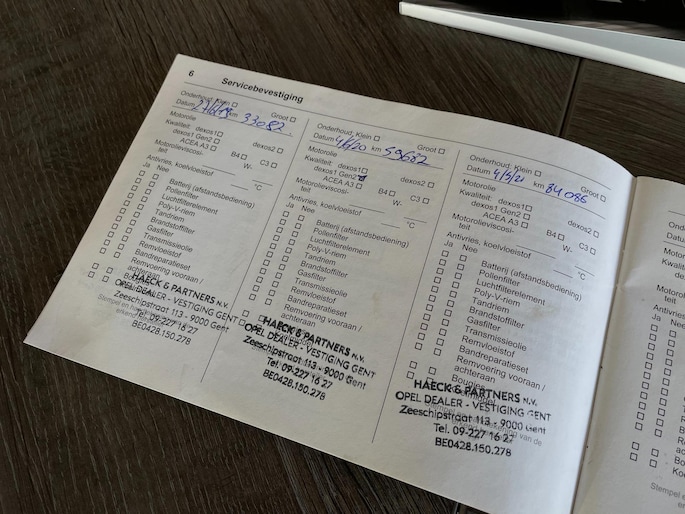 6
Servicebevestiging
Onderhoud, Klein □ Groot □
Datum 27/6/19 km 33082
Motorolie
Kwaliteit: dexos1 □ dexos2 □
dexos1 Gen2 □
ACEA A3 □ B4 □ C3 □
Motorolieviscosi- W-
teit
Antivries, koelvloeistof °C
Ja Nee
□ □ Batterij (afstandsbediening)
□ □ Pollenfilter
□ □ Luchtfilterelement
□ □ Poly-V-riem
□ □ Tandriem
□ □ Brandstoffilter
□ □ Gasfilter
□ □ Transmissieolie
□ □ Remvloeistof
□ □ Bandreparatieset
□ □ Remvoering vooraan /
achteraan
HAECK & PARTNERS N.V.
OPEL DEALER - VESTIGING GENT
Zeeschipstraat 113 - 9000 Gent
Tel. 09-227 16 27
BE0428.150.278
Onderhoud, Klein □ Groot □
Datum 4/6/20 km 59682
Motorolie
Kwaliteit: dexos1 □ dexos2 □
dexos1 Gen2
ACEA A3 □ B4 □ C3 □
Motorolieviscosi- W-
teit
Antivries, koelvloeistof °C
Ja Nee
□ □ Batterij (afstandsbediening)
□ □ Pollenfilter
□ □ Luchtfilterelement
□ □ Poly-V-riem
□ □ Tandriem
□ □ Brandstoffilter
□ □ Gasfilter
□ □ Transmissieolie
□ □ Remvloeistof
□ □ Bandreparatieset
□ □ Remvoering vooraan /
achteraan
HAECK & PARTNERS N.V.
OPEL DEALER - VESTIGING GENT
Zeeschipstraat 113 - 9000 Gent
Tel. 09-227 16 27
BE0428.150.278
Onderhoud, Klein □ Groot □
Datum 4/5/21 km 84086
Motorolie
Kwaliteit: dexos1 □ dexos2 □
dexos1 Gen2 □
ACEA A3 □ B4 □ C3 □
Motorolieviscosi- W-
teit
Antivries, koelvloeistof °C
Ja Nee
□ □ Batterij (afstandsbediening)
□ □ Pollenfilter
□ □ Luchtfilterelement
□ □ Poly-V-riem
□ □ Tandriem
□ □ Brandstoffilter
□ □ Gasfilter
□ □ Transmissieolie
□ □ Remvloeistof
□ □ Bandreparatieset
□ □ Remvoering vooraan /
achteraan
□ □ Bougies
HAECK & PARTNERS N.V.
OPEL DEALER - VESTIGING GENT
Zeeschipstraat 113 - 9000 Gent
Tel. 09-227 16 27
BE0428.150.278
Datum
Motorolie
Kwaliteit:
teit
Antivries,
Ja Nee
Stempel e